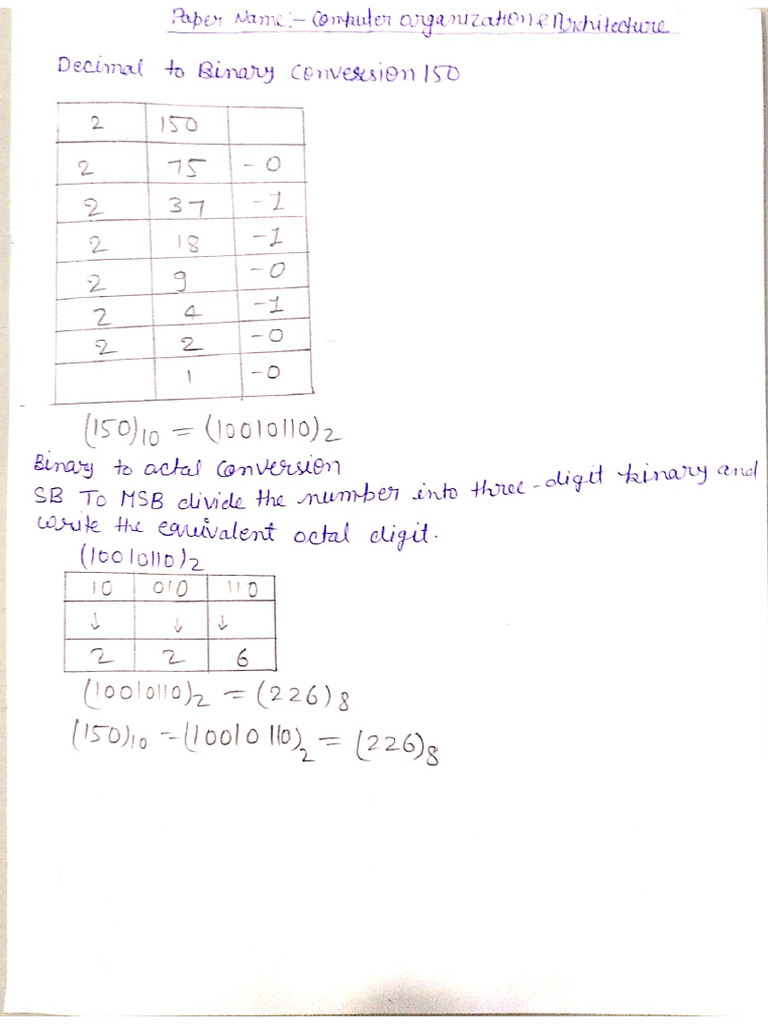 Paper Name:- Computer organization & Architecture
Decimal to Binary Conversion 150
2 150
2 75 - 0
2 37 - 1
2 18 - 1
2 9 - 0
2 4 - 1
2 2 - 0
1 - 0
(150)10 = (10010110)2
Binary to actal conversion
SB TO MSB divide the number into three-digit binary and
write the equivalent octal digit.
(10010110)2
10 010 110
↓ ↓ ↓
2 2 6
(10010110)2 = (226)8
(150)10 = (10010110)2 = (226)8